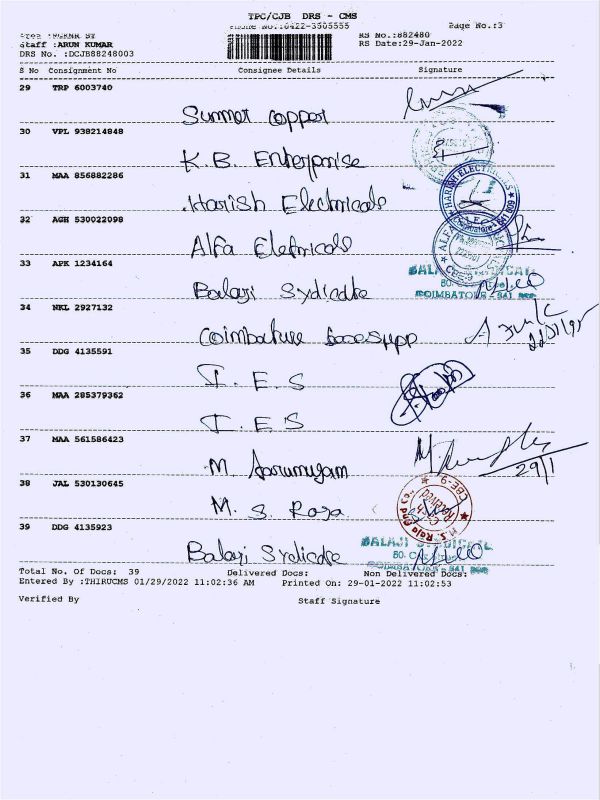 TPC/CJB DRS - CMS
Phone No.:0422-3505555 Page No.:3
RS No.:882480
Staff :ARUN KUMAR RS Date:29-Jan-2022
DRS No. :DCJB88248003
S No Consignment No Consignee Details Signature
29 TRP 6003740
Summet copper
30 VPL 938214848
K.B. Enterprise
31 MAA 856882286
Harish Electricals
32 AGH 530022098
Alfa Eletricals
33 APK 1234164
Balaji Sydicate
BALAJI SYNDICATE
COIMBATORE - 641
34 NKL 2927132
Coimbature
35 DDG 4135591
I. E. S
36 MAA 285379362
I. E. S
37 MAA 561586423
M. Aarumugam
29/1
38 JAL 530130645
M. S. Raja
39 DDG 4135923
Balaji Sydicate
BALAJI SYNDICATE
COIMBATORE - 641
Total No. Of Docs: 39 Delivered Docs: Non Delivered Docs:
Entered By :THIRUCMS 01/29/2022 11:02:36 AM Printed On: 29-01-2022 11:02:53
Verified By Staff Signature